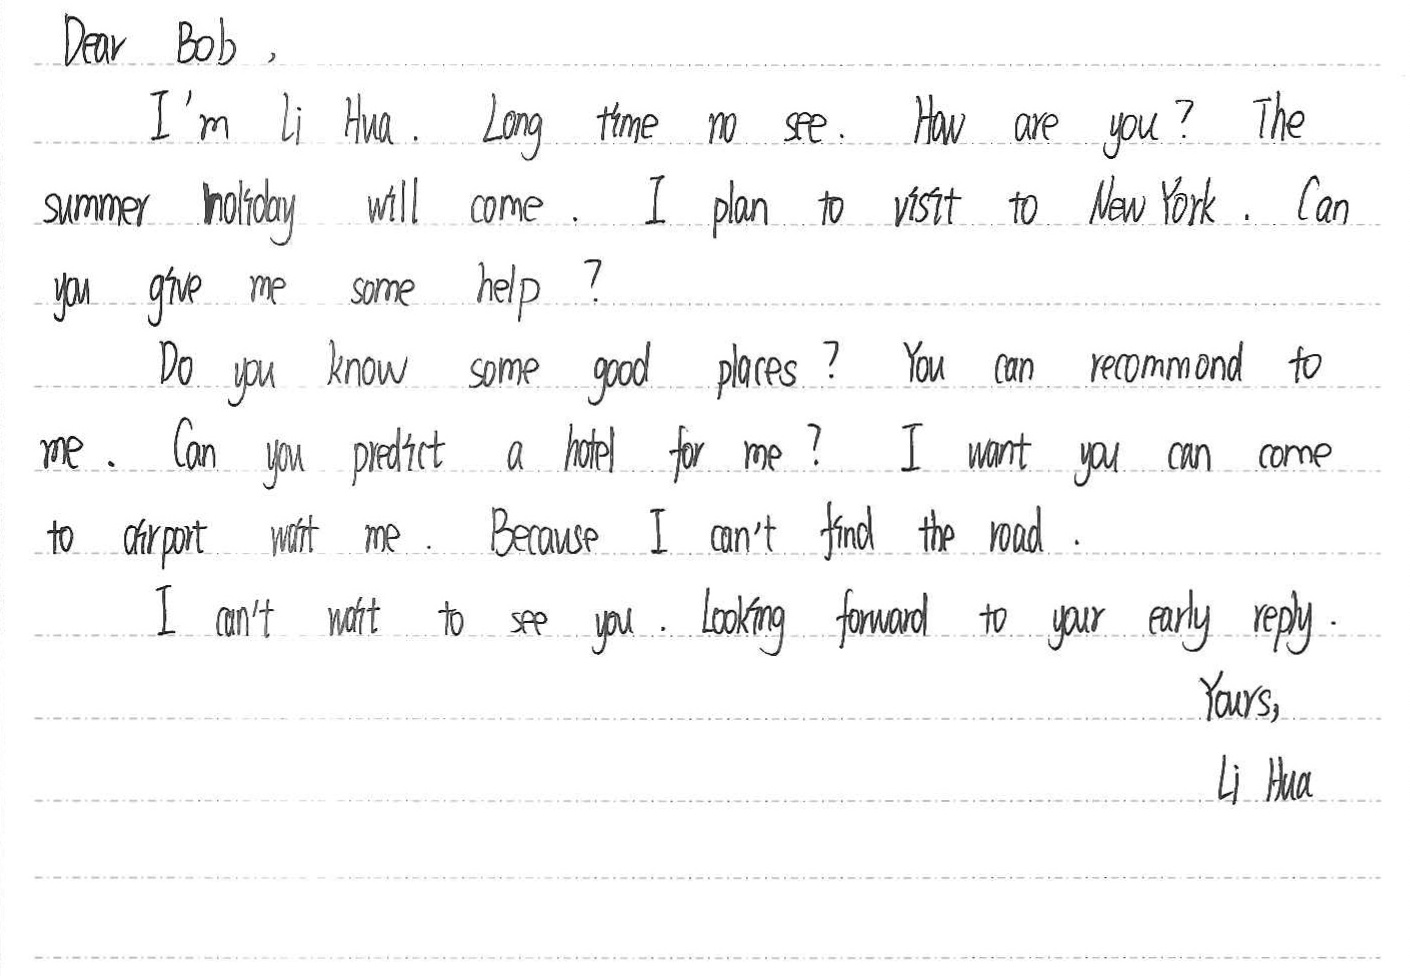 Dear Bob,
I'm Li Hua. Long time no see. How are you? The
summer holiday will come. I plan to visit to New York. Can
you give me some help?
Do you know some good places? You can recommond to
me. Can you predict a hotel for me? I want you can come
to airport wait me. Because I can't find the road.
I can't wait to see you. Looking forward to your early reply.
Yours,
Li Hua